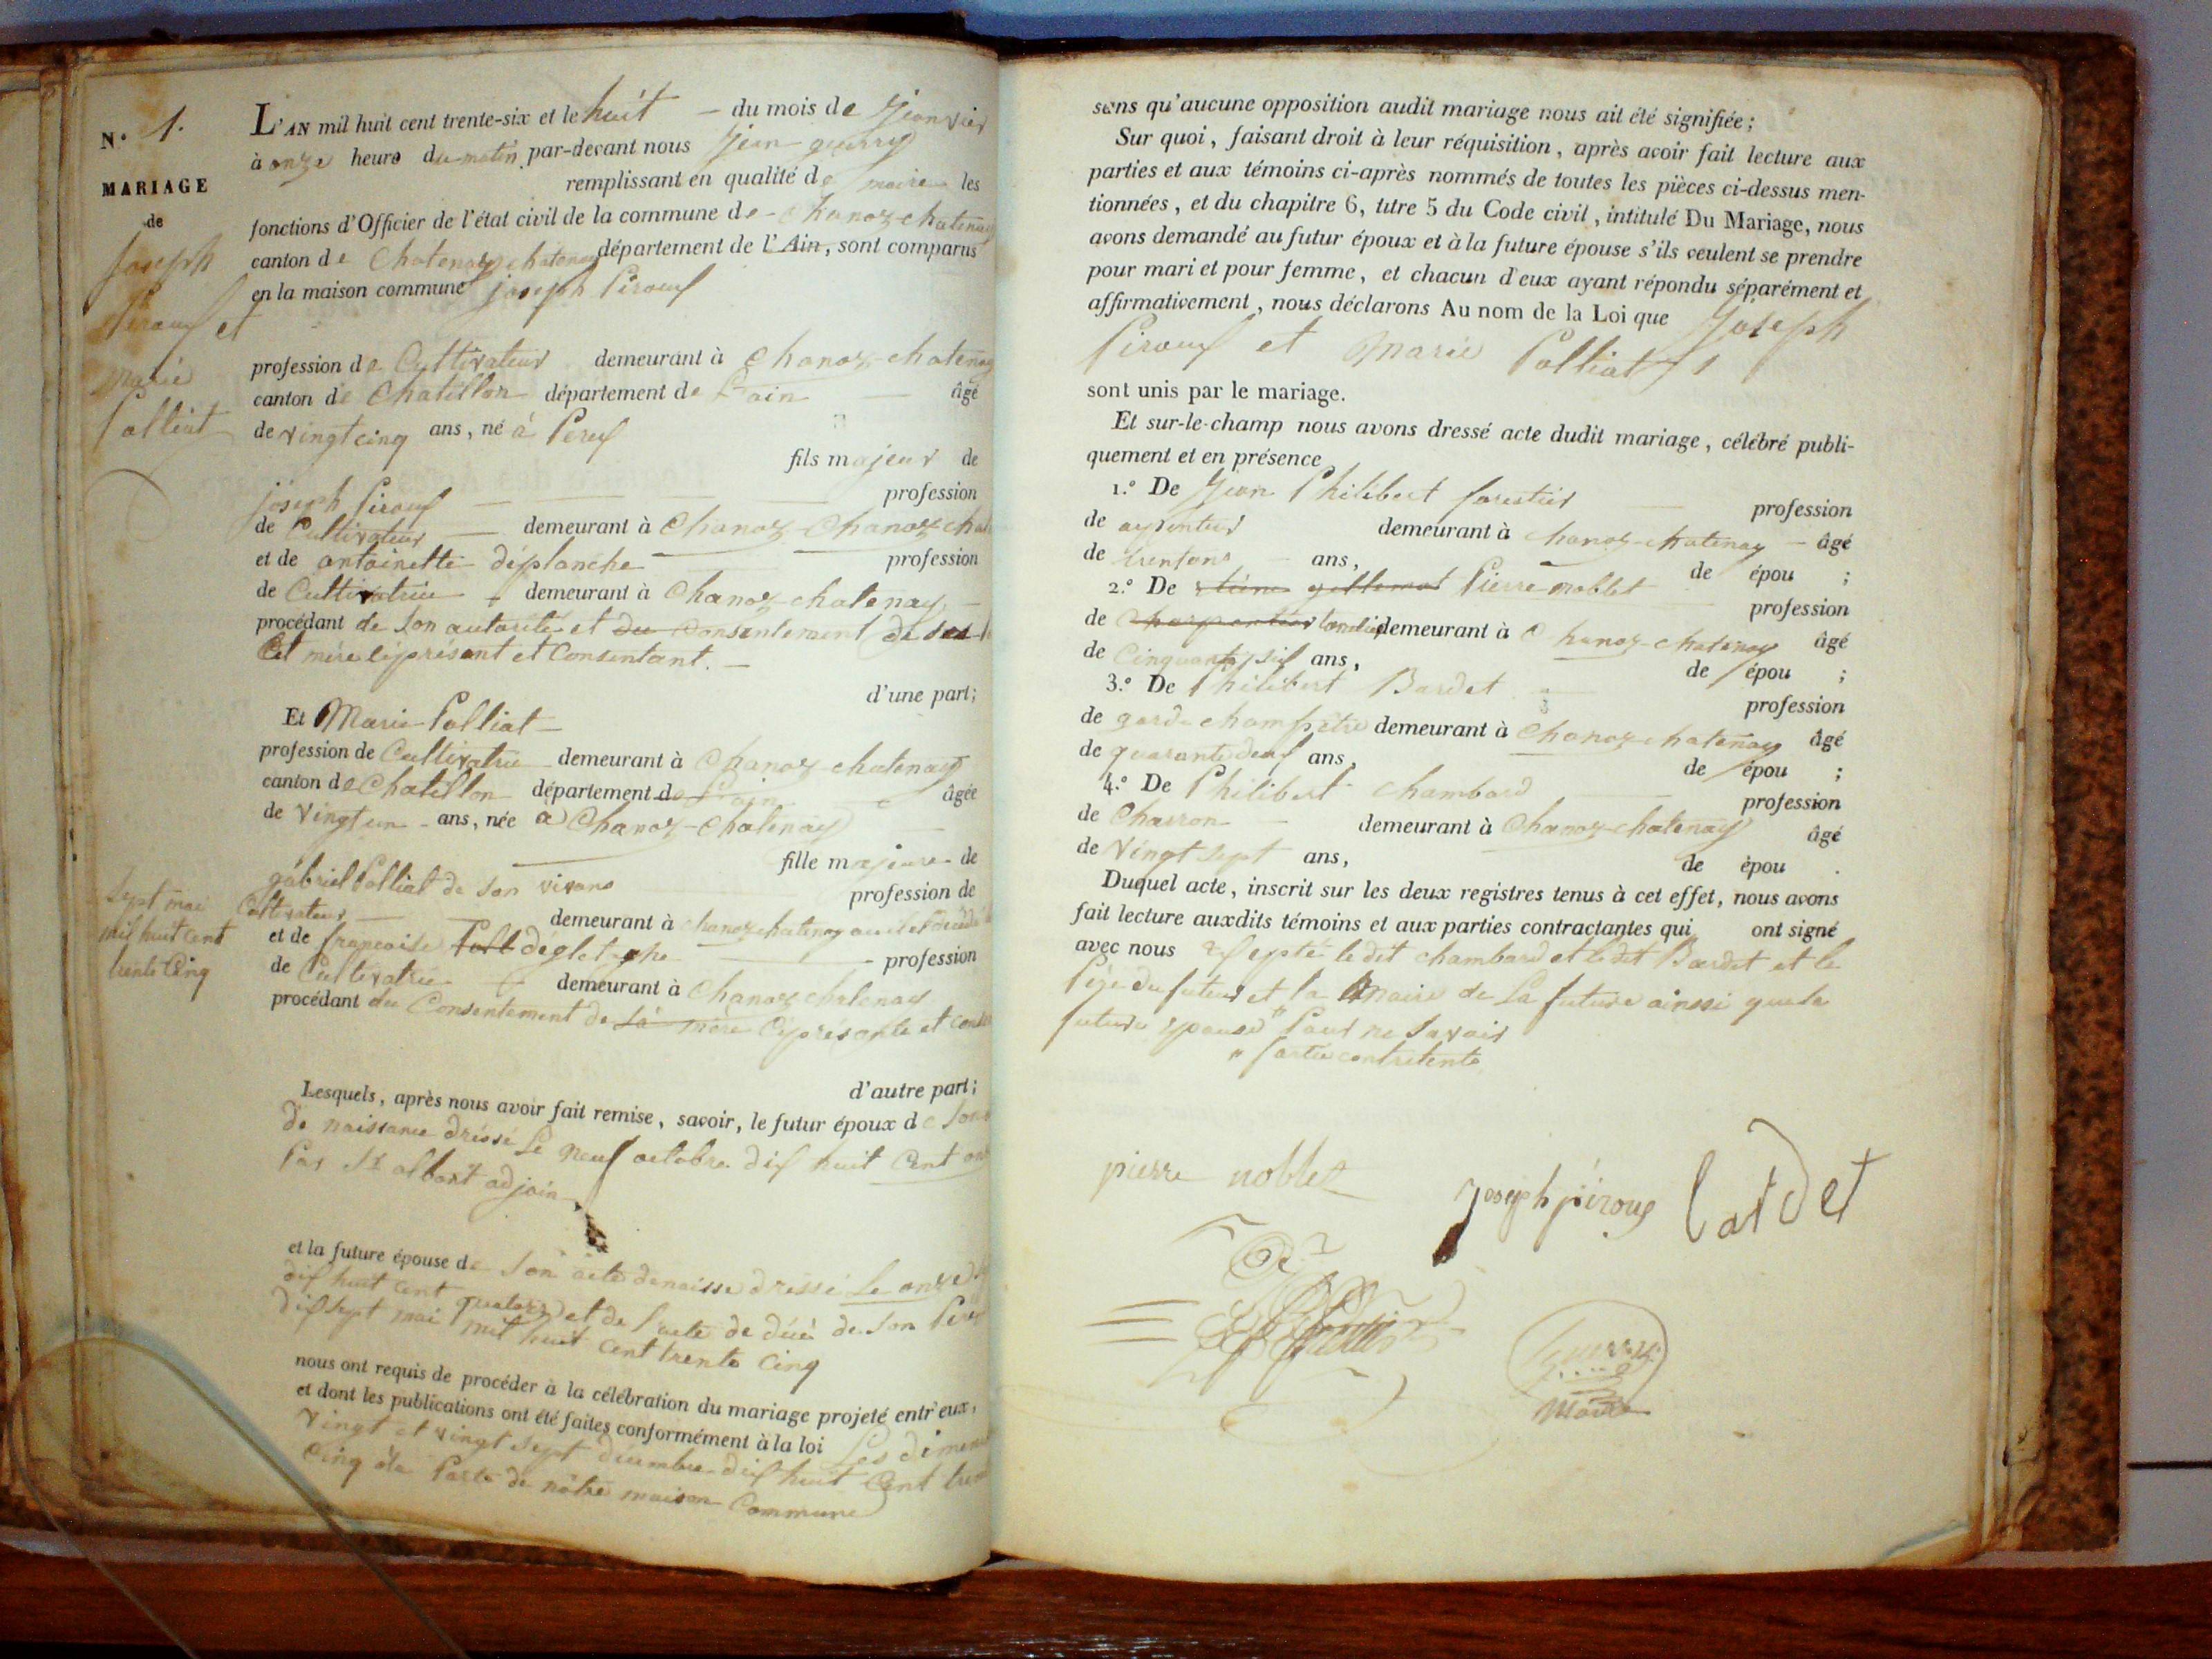 N.° 1.
MARIAGE
de
Joseph
Piroux et
marie
Polliat
L'AN mil huit cent trente-six et le huit – du mois de Jeanvier
à onze heure du matin par-devant nous Jean guerry
remplissant en qualité de maire les
fonctions d'Officier de l'état civil de la commune de Chanoz-chatenay
canton de Chatenay département de l'Ain, sont comparus
en la maison commune joseph Piroux
profession de Cultivateur demeurant à Chanoz-chatenay
canton de Chatillon département de L'ain âgé
de vingt cinq ans, né à Perex
fils majeur de
joseph Piroux profession
de Cultivateur demeurant à Chanoz Chanoz
et de antoinette déplanche profession
de Cultivatrice demeurant à Chanoz-chatenay
procédant de son autorité et du Consentement de ses
et mère ci présent et Consentant.
d'une part;
Et Marie Polliat
profession de Cultivatrice demeurant à Chanoz-chatenay
canton de Chatillon département de L'ain âgée
de vingt un ans, née à Chanoz-Chatenay
fille majeure de
gabriel Polliat de son vivans profession de
Cultivateur demeurant à chanoz chatenay
et de francoise Poll profession
de Cultivatrice demeurant à Chanoz chatenay
procédant du Consentement de sa mère ci présante et
d'autre part;
sept mai
mil huit cent
trente Cinq
Lesquels, après nous avoir fait remise, savoir, le futur époux de son
de naissance dréssé Le neuf octobre dix huit Cent
Par St albant adjoin
et la future épouse de son acte denaisse dréssé Le onze
dix huit cent quatorz et de l'acte de décè de son Père
dix sept mai mil huit cent trente Cinq
nous ont requis de procéder à la célébration du mariage projeté entr'eux,
et dont les publications ont été faites conformément à la loi Les
vingt et vingt sept décembre dix huit Cent
Cinq à la Porte de nôtre maison Commune
sans qu'aucune opposition audit mariage nous ait été signifiée;
Sur quoi, faisant droit à leur réquisition, après avoir fait lecture aux
parties et aux témoins ci-après nommés de toutes les pièces ci-dessus men-
tionnées, et du chapitre 6, titre 5 du Code civil, intitulé Du Mariage, nous
avons demandé au futur époux et à la future épouse s'ils veulent se prendre
pour mari et pour femme, et chacun d'eux ayant répondu séparément et
affirmativement, nous déclarons Au nom de la Loi que Joseph
Piroux et Marie Polliat
sont unis par le mariage.
Et sur-le-champ nous avons dressé acte dudit mariage, célébré publi-
quement et en présence
1.° De Jean Philibert forestier profession
de demeurant à Chanoz-chatenay âgé
de ans, de épou ;
2.° De Pierre noblet profession
de Charpentier demeurant à Chanoz-chatenay âgé
de Cinquante six ans, de épou ;
3.° De Philibert Bardet profession
de garde champêtre demeurant à Chanoz-chatenay âgé
de quarante deux ans, de épou ;
4.° De Philibert chambard profession
de Charron demeurant à Chanoz-chatenay âgé
de Vingt sept ans, de épou .
Duquel acte, inscrit sur les deux registres tenus à cet effet, nous avons
fait lecture auxdits témoins et aux parties contractantes qui ont signé
avec nous exsepté le dit chambard et ledit Bardet et le
Père du futur et la maire de La future ainssi que la
future Epouse Pour ne savoir
pierre noblet
Joseph piroux
bardet
guerry
Maire